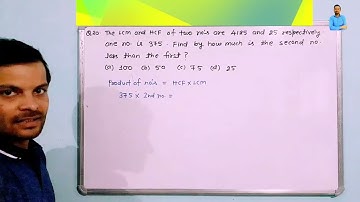 Q.20 The LCM and HCF of two no's are 4125 and 25 respectively
one no. is 375. Find by how much is the second no.
less than the first?
(a) 100 (b) 50 (c) 75 (d) 25
Product of no's = HCF x LCM
375 x 2nd no =